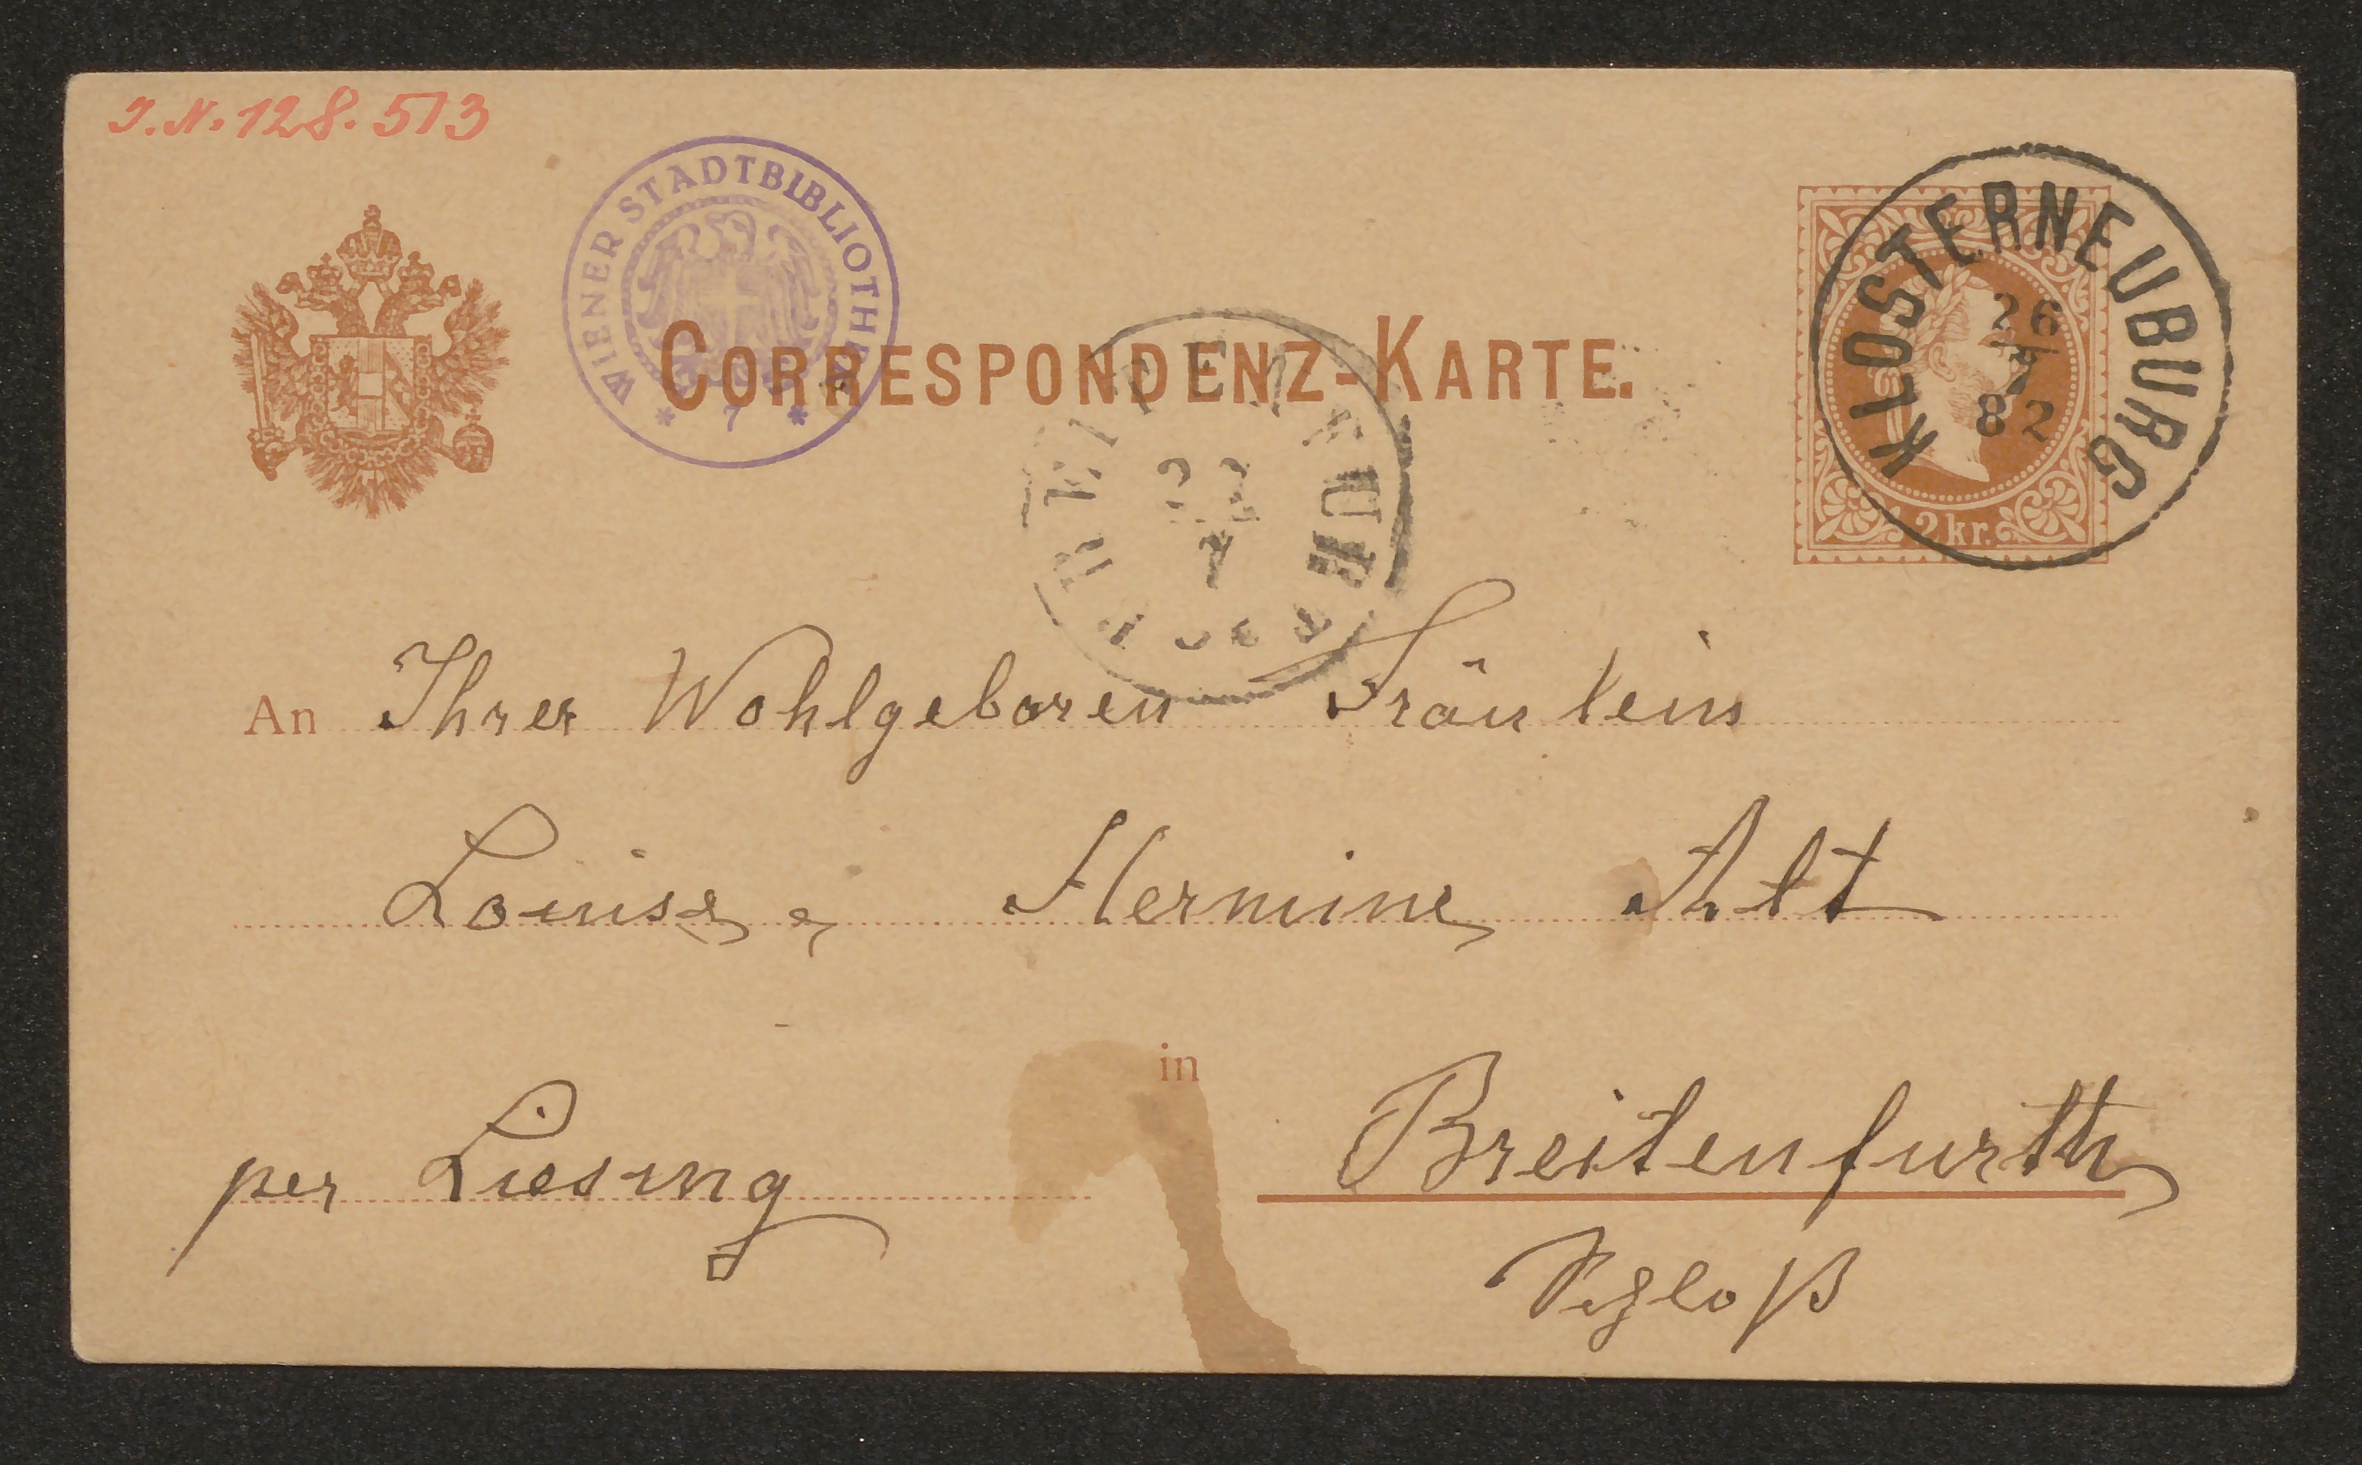 I.N. 128.513
WIENER STADTBIBLIOTHEK
* 7 *
CORRESPONDENZ-KARTE.
KLOSTERNEUBURG
26
7
82
2 kr.
7
An Ihrer Wohlgeboren Fräulein
Louise, Hermine Alt
in
per Liesing Breitenfurth
Schloß